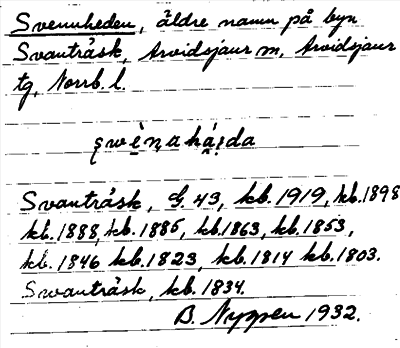 Svennheden, äldre namn på byn
Svanträsk, Arvidsjaur sn, Arvidsjaur
tg, Norrb. l.
Svanträsk, G. 43, kb. 1919, kb. 1898
kb. 1888, kb. 1885, kb. 1863, kb. 1853,
kb. 1846 kb. 1823, kb. 1814 kb. 1803.
Swanträsk, kb. 1834.
B. 1932.